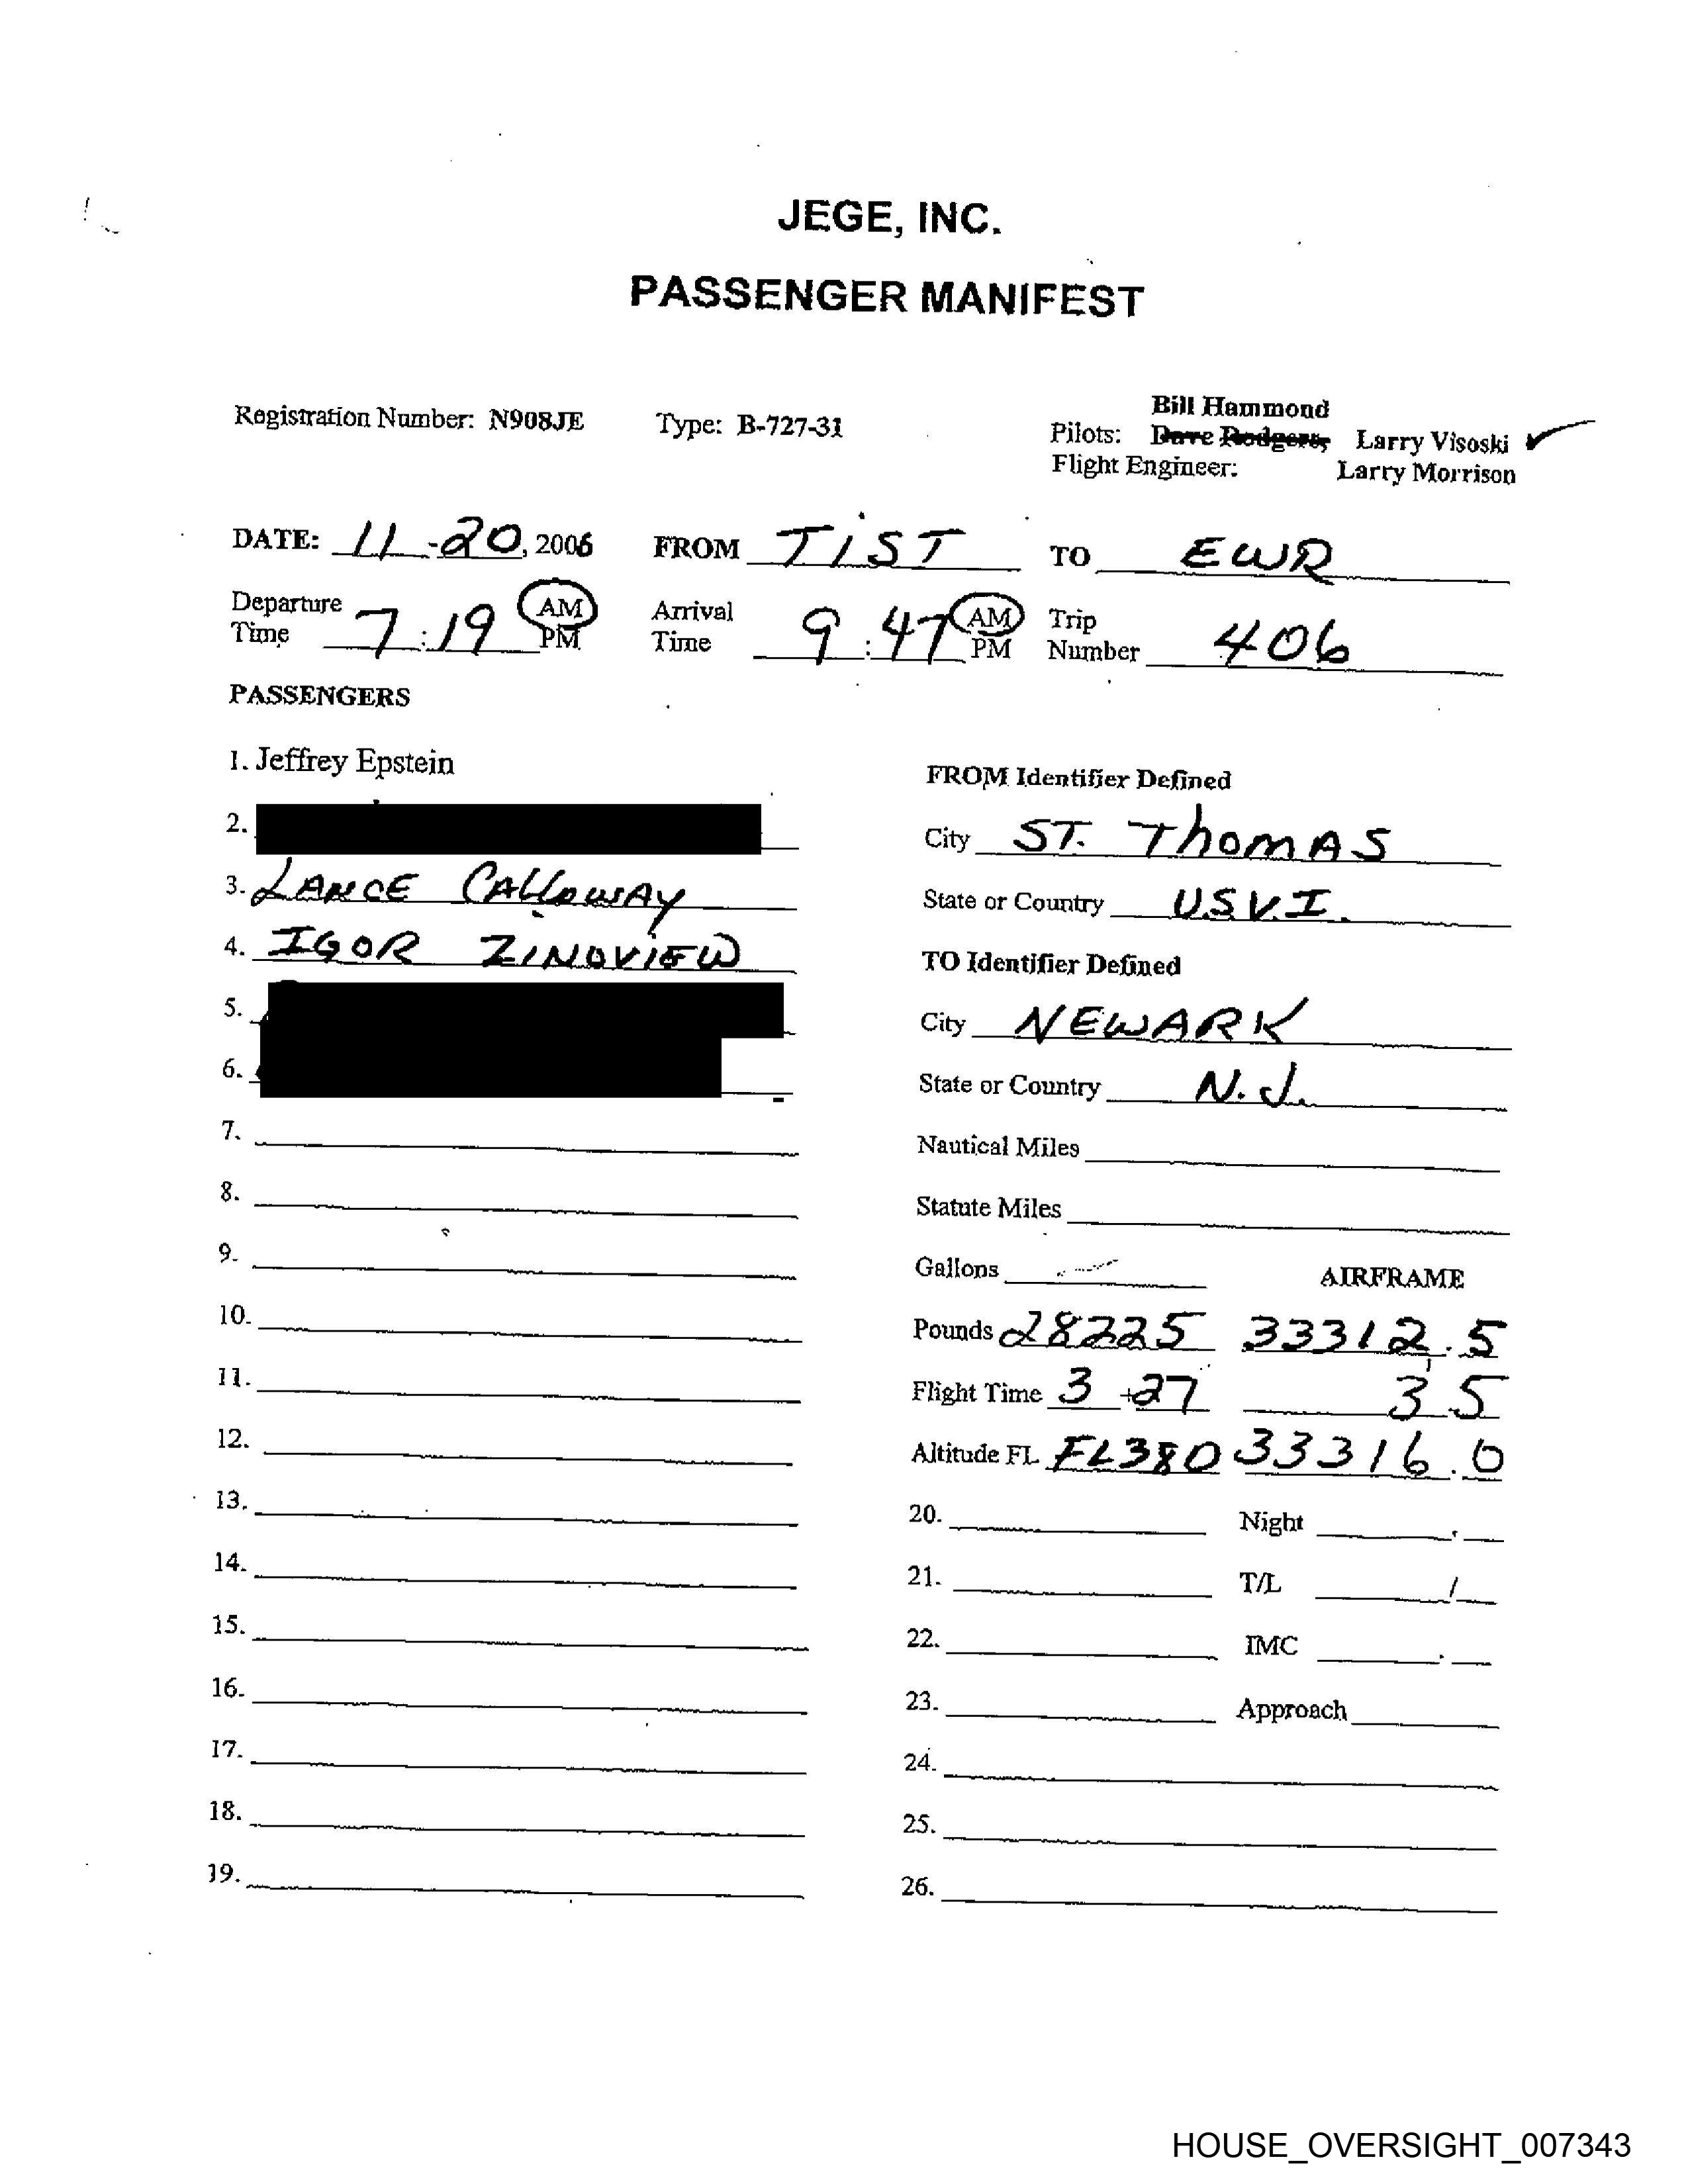 JEGE, INC.
PASSENGER MANIFEST
Registration Number: N908JE Type: B-727-31 Bill Hammond
Pilots: Dave Rodgers, Larry Visoski ✓
Flight Engineer: Larry Morrison
DATE: 11-20, 2006 FROM TIST TO EWR
Departure Time 7:19 AM PM Arrival Time 9:47 AM PM Trip Number 406
PASSENGERS
1. Jeffrey Epstein
2.
3. LANCE CALLOWAY
4. IGOR ZINOVIEW
5.
6.
7.
8.
9.
10.
11.
12.
13.
14.
15.
16.
17.
18.
19.
FROM Identifier Defined
City ST. ThomAS
State or Country U.S.V.I.
TO Identifier Defined
City NEWARK
State or Country N.J.
Nautical Miles
Statute Miles
Gallons AIRFRAME
Pounds 28225 33312.5
Flight Time 3+27 3.5
Altitude FL FL380 33316.0
20. Night
21. T/L /
22. IMC
23. Approach
24.
25.
26.
HOUSE_OVERSIGHT_007343